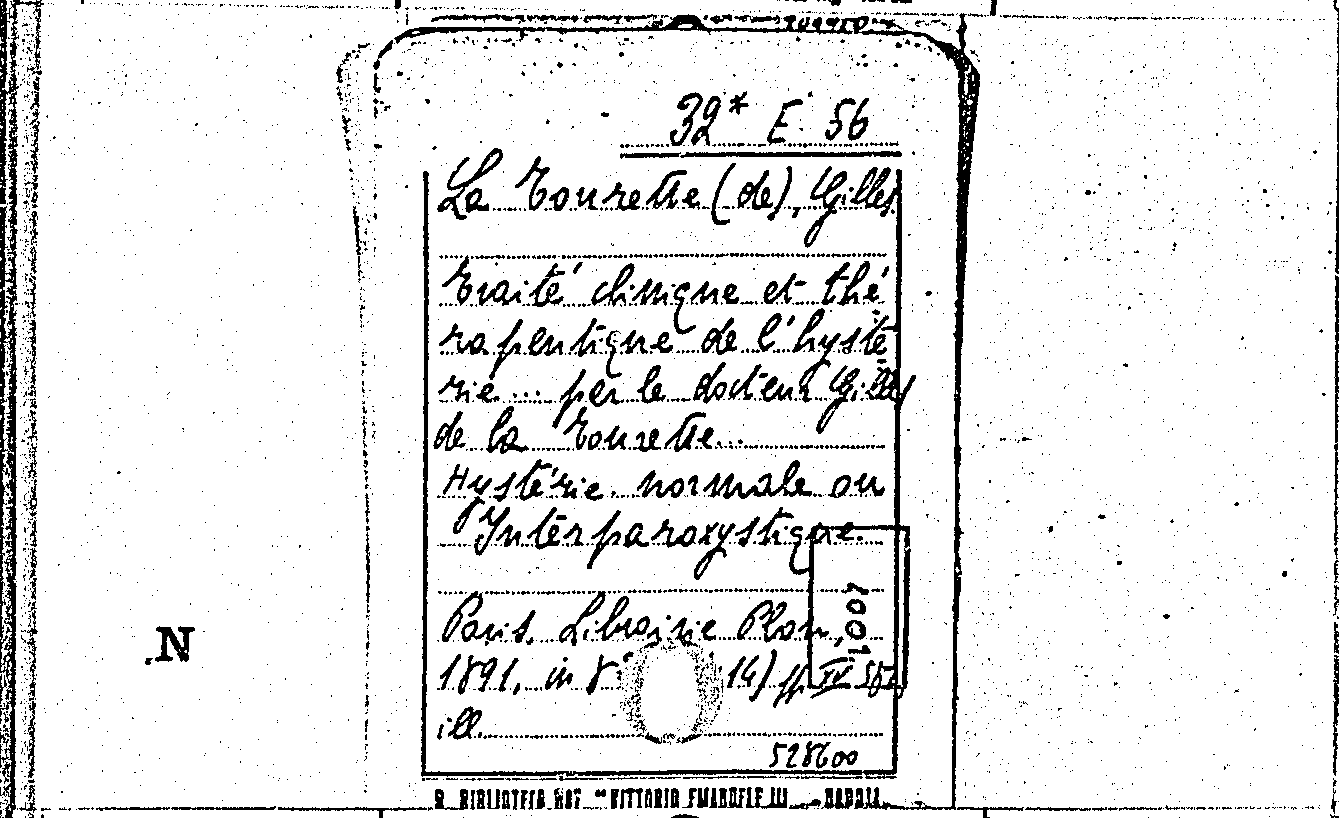 32* E. 56
La Tourette (de), Gilles
Traité clinique et thé
rapeutique de l'hysté
rie... par le docteur Gilles
de la Tourette...
Hystérie normale ou
Interparoxystique.
Paris, Librairie Plon,
1891, in 8° 14) pp. XV
ill.
528600
1007
N
R. BIBLIOTECA NAZ. "VITTORIO EMANUELE III - NAPOLI